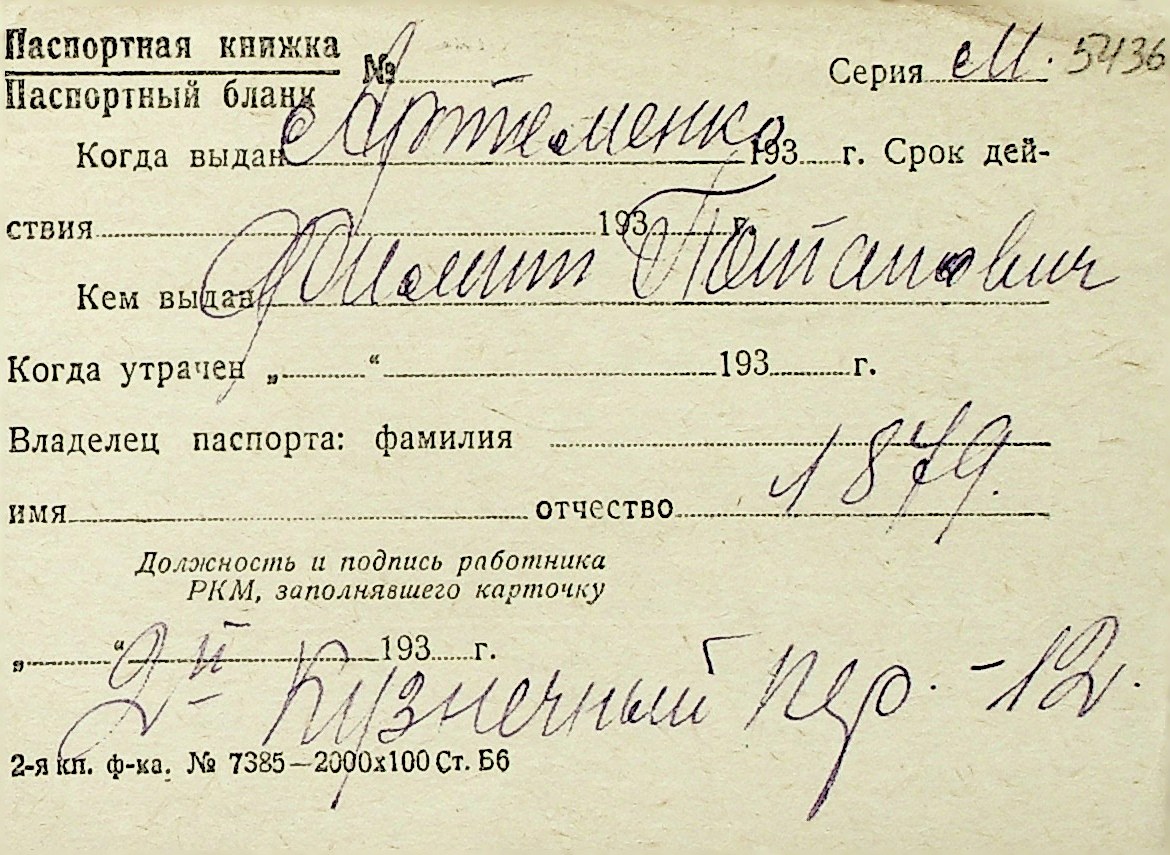 Паспортная книжка
Паспортный бланк
№
Серия М. 5436
Артеменко
Когда выдан 193 г. Срок дей-
ствия 193 г.
Филипп Потапович
Кем выдан
Когда утрачен „ “ 193 г.
Владелец паспорта: фамилия
1879.
имя отчество
Должность и подпись работника
РКМ, заполнявшего карточку
„ “ 193 г.
2й Кузнечный пер. -12.
2-я кп. ф-ка. № 7385—2000х100 Ст. Б6